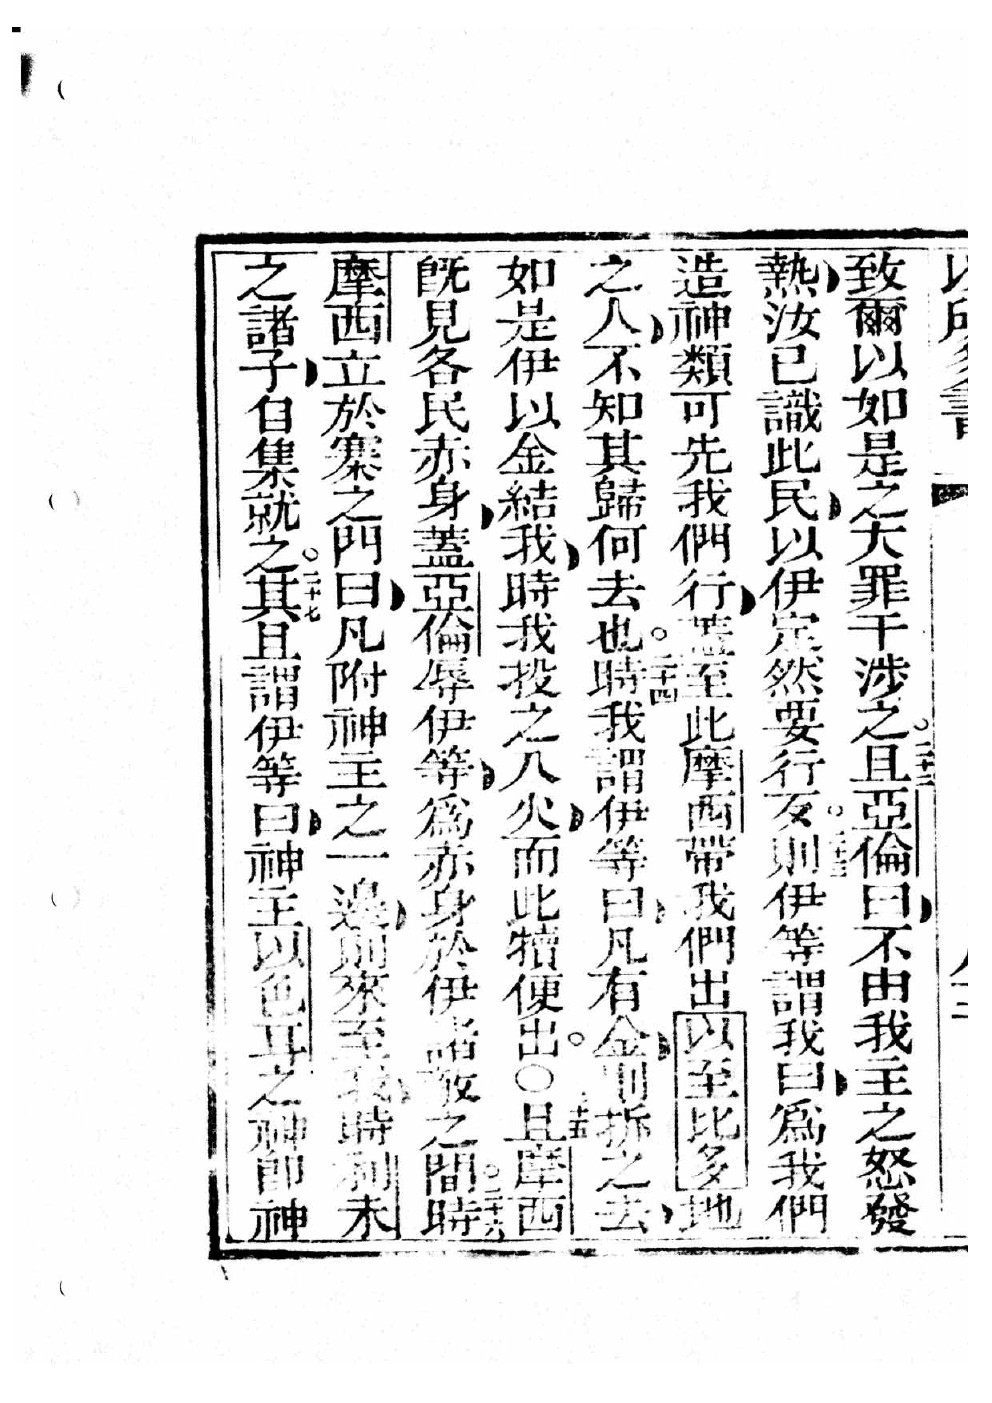 致爾以如是之大罪干涉之。二十二且亞倫曰不由我主之怒發
熱汝已識此民以伊定然要行歹。二十三則伊等謂我曰爲我們
造神類可先我們行蓋至此摩西帶我們出以至比多地
之人不知其歸何去也。二十四時我謂伊等曰凡有金則拆之去
如是伊以金結我時我投之入火而此犢便出。〇二十五且摩西
旣見各民赤身蓋亞倫辱伊等爲赤身於伊諸敵之間。二十六時
摩西立於寨之門曰凡附神主之一邊則來至我時利未
之諸子自集就之。二十七其且謂伊等曰神主以色耳之神卽神